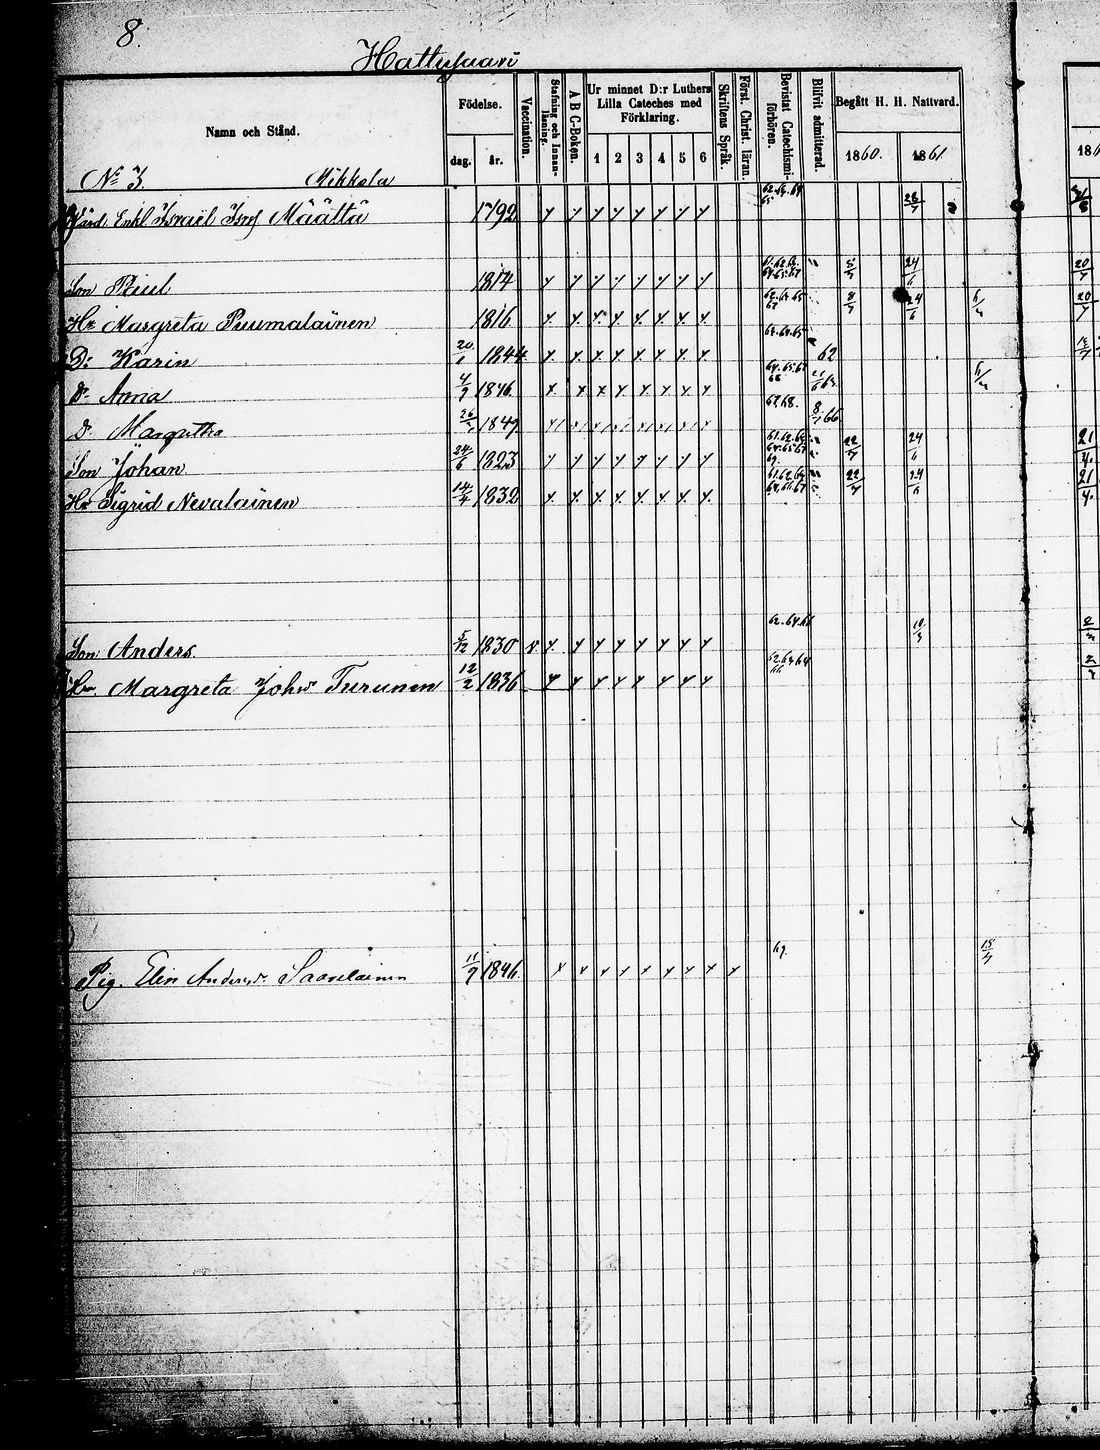 8.
Hattusaari
Namn och Stånd.
Födelse.
dag.
år.
Vaccination.
Stafning och Innanläsning.
A B C-Boken.
Ur minnet D:r Luthers Lilla Cateches med Förklaring.
1 2 3 4 5 6
Skriftens Språk.
Först. Christ. läran.
Bevistat Catechismiförhören.
Blifvit admitterad.
Begått H. H. Nattvard.
1860. 1861.
No 3. Mikkola
Enkl Israel Määttä 1792 x x x x x x x x
Son Paul 1814 x x x x x x x x 24/6
Hu Margreta Puumalainen 1816 x x x x x x x x 24/6
D: Karin 20 1844 x x x x x x x x 62
D: Anna 4/9 1846 x x x x x x x x
D: Margretha 26 1849 x x x x x x x x 67.68. 66
Son Johan 24/6 1823 x x x x x x x x 24/6
Hu Sigrid Nevalainen 1832 x x x x x x x x 24/6
Son Anders 5/12 1830 v x x x x x x x x
Hu. Margreta Johsdr Turunen 12/2 1836 x x x x x x x x
Pig. Elin Andersdr. Saarelainen 11/9 1846. x x x x x x x x x 69.